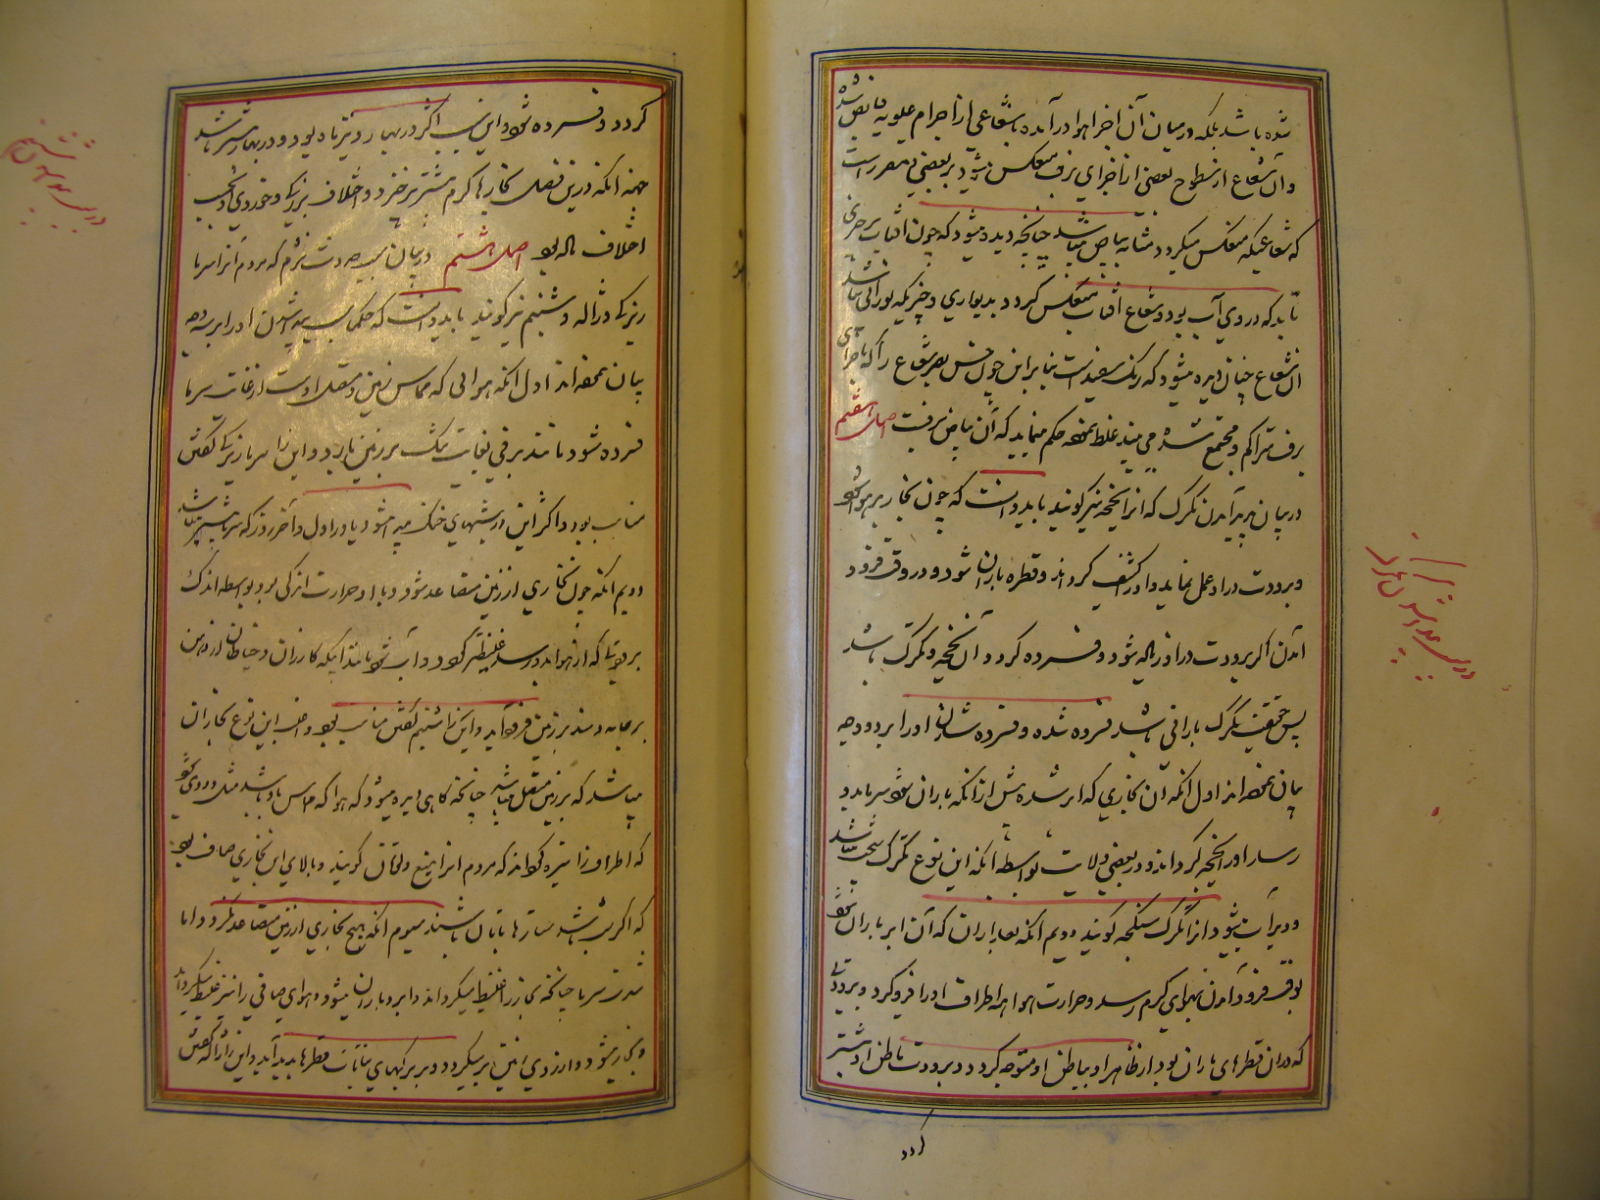 شده باشد بلکه درمیان آن اجزا هوا درآمده باشعاعی از اجرام علویه فایض شده
وآن شعاع از سطوح بعضی از اجزای برف منعکس شود بر بعضی دیگر مقررست
که شعاعیکه منعکس میکردد مشابه بیاض میباشد چنانچه دیده میشود که چون آفتاب بر چیزی
تابد که در وی آب بود و شعاع آفتاب منعکس کردد بدیواری و چیزیکه نورانی باشد
آن شعاع چنان دیده میشود که رنک سفیدست بنابراین چون حس بصر شعاع را که باجزای
برف متراکم و مجتمع شده می بیند غلط نموده حکم مینماید که آن بیاض برفست اصل هفتم
دربیان پدید آمدن تکرک که انرا یخچه نیز کویند باید دانست که چون بخار بر هوا شود
وبرودت دراو عمل نماید واورا کثیف کرداند وقطره باران شود ودر وقت فرود
آمدن اکر برودت دراو زیاده شود وفسرده کردد آن یخچه و تکرک باشد
پس حقیقت تکرک بارانی باشد فسرده شده وفسرده شدن اورا بردو وجه
بیان نموده اند اول آنکه آن بخاری که ابر شده پیش از آنکه باران شود سرما بدو
رسد اورا یخچه کرداند ودر بعضی ولایت بواسطه آنکه این نوع تکرک سخت میباشد
ودیر آب میشود انرا تکرک سنکچه کویند دویم آنکه بعد ازان که آن ابر باران شود
بوقت فرود آمدن بهوای کرم رسد وحرارت هوا همه اطراف اورا فرو کیرد وبرودتی
که دران قطرهای باران بود از ظاهر او بباطن او متوجه کردد وبرودت باطن او بیشتر
کردد
کردد وفسرده شود واین سبب اکثر در بهار وتیرماه بود ودر بهار بیشتر باشد
جهة آنکه درین فصل بخارها کرم تر بیشتر برخیزد واختلاف بزرکی وخوردی بحسب
اختلاف ماده بود اصل هشتم دربیان سبب حدوث بژم که مردم آنرا سرما
ریزک وژاله وشبنم نیز کویند باید دانست که حکما سبب پدید شدن اورا بر سه وجه
بیان نموده اند اول آنکه هوائی که مماس زمین ومتصل اوست از غایت سرما
فسرده شود مانند برفی بغایت تنک بر زمین بارد واین را سرما ریزک کفتن
مناسب بود واکثر این در شبهای خنک پدید میشود یا در اول وآخر روز که سرما بیشتر میباشد
دویم آنکه چون بخاری از زمین متصاعد شود وبا او حرارت اندکی بود بواسطه اندک
برودتی که از هوا بدو رسد غلیظ کردد وآب شود مانند آنکه کازران وخیاطان از دهن
بر جامه دمند بر زمین فرود آید واین را شبنم کفتن مناسب بود وسبب این نوع بخاران
میباشد که بر زمین متصل میباشد چنانچه کاهی دیده میشود که هوا که مماس ما باشد مثل دودی شود
که اطراف را تیره کرداند که مردم انرا میغ وتومان کویند وبالای این بخاری صاف بود
که اکر شب باشد ستارها تابان باشند سیوم آنکه هیچ بخاری از زمین متصاعد نکردد واما
شدت سرما چنانچه بخار را غلیظ میکرداند وابر وباران میشود وهوای صافی را نیز غلیظ میکرداند
وبخار میشود واز زمین بر میکیرد وبر برکهای نباتات قطرها پدید آید واین را ژاله کفتن